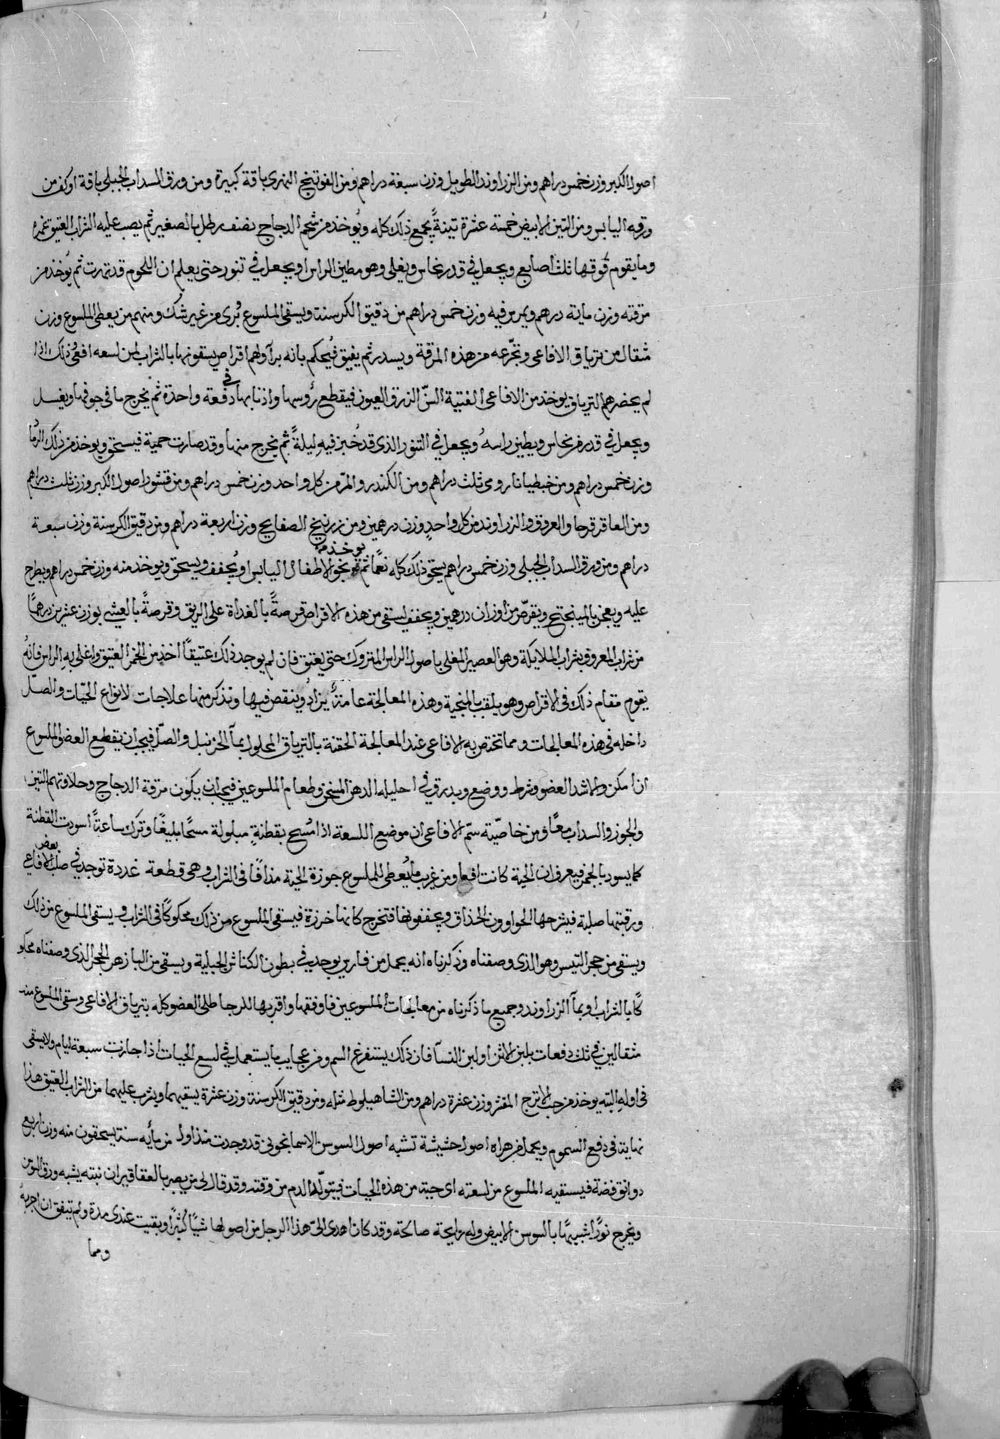 اصول الكبر وزن خمس دراهم ومن الزراوند الطويل وزن سبعة دراهم ومن الفوتنج النهري باقة كبيرة ومن ورق السداب الجبلي باقة او كف من
ورقه اليابس ومن التين الابيض خمسة عشرة تينةً يجمع ذلك كله ويُوخذ من شحم الدجاج نصف رطل بالصغير ثم يصب عليه الشراب العتيق غمره
وما يقوم فوقها ثلث اصابع ويجعل في قدر نحاس ويغلى وهو مطين الراس او يجعل في تنور حتى يعلم ان اللحوم قد تهرت ثم يُوخذ من
مرقته وزن ماية درهم ويمرس فيه وزن خمس دراهم من دقيق الكرسنة ويسقى الملسوع يُبرى من غير شك ومنهم من يعطى الملسوع وزن
مثقالين ترياق الافاعى وتجرّعه من هذه المرقة ويسدر ثم يفيق فيُحكم بانه برأ ولهم اقراص يسقونها بالشراب لمن لسعه افعى وذلك اذا
لم يحضرهم الترياق يوخذ من الافاعى الفتية السنّ الزرق العيون فيقطع رؤسها واذنابها في دفعة واحدة ثم يخرج ما في جوفها ويغسل
ويجعل في قدر من نحاس ويطين راسهُ ويجعل في التنور الذى قد خُبز فيه ليلةً ثم يخرج منها وقد صارت حمية فيسحق ويوخذ من ذلك الرماد
وزن خمس دراهم ومن خبطيانا رومى ثلث دراهم ومن الكندر والمرّ من كل واحد وزن خمس دراهم ومن قشور اصول الكبر وزن ثلث دراهم
ومن العاقر قرحا والعروق والزراوند من كل واحدٍ وزن درهمين ومن زرنيخ الصفايح وزن اربعة دراهم ومن دقيق الكرسنة وزن سبعة
دراهم ومن ورق السداب الجبلى وزن خمس دراهم يسحق ذلك كله نعمًا ثم يوخذ من نجو الاطفال اليابس او يُجفف ويسحق ويوخذ منه وزن خمس دراهم ويطرح
عليه ويعجن بالمبنجتج ويقرّص من اوزان درهمين ويجفف يسقى من هذه الاقراص قرصةً بالغداة على الريق وقرصةً بالعشى بوزن عشرين درهمًا
من شراب المعروف بشراب الملايكة وهو العصير المغلى باصول الراس المتروك حتى يعتق فان لم يوجد ذلك عتيقًا اخذ من الخمر العتيق واغلى به الراس فانهُ
يقوم مقام ذلك في الاقراص وهو يلقب المنجية وهذه المعالجة عامةٌ يزاد وينقص فيها ونذكر منها علاجات لانواع الحيّات والصلّ
داخله في هذه المعالجات ومما تختص به الافاعى عند المعالجة الحقنة بالترياق المحلول بمآ الحزنبل والصلّ فيجب ان يقطع العضو الملسوع
ان امكن وطا شد العضو وشرط ووضع ويد روقى في احليله الدهن المسخن وطعام الملسوعين فيجب ان يكون مرقة الدجاج وحلاوتهم التين
والجوز والسداب معًا ومن خاصّية سمّ الافاعى ان موضع اللسعة اذا مُسح بقطنةٍ مبلولة مسحًا بليغًا وترك ساعةً اسودت القطنة
كما يسود بالجمر فيعرف ان الحية كانت افعا ومن غريب ما يُعطى للملسوع جوزة الحية مذافًا في الشراب وهي قطعة غددة توجد في صلب بعض الافاعى
ورقبتها صلبة فيشرحها الحواوون الحذاق ويجففونها فتخرج كانها خرزة فيسقى الملسوع من ذلك محكوكًا في الشراب ويسقى الملسوع من ذلك
ويسقى من حجر التيس وهو الذى وصفناه وذكرناه انه يحمل من فارس يوجد في بطون الكباش الجبلية ويسقى من البازهر الحجر الذى وصفناه محكو
كًا بالشراب او بمآ الزراوند وجميع ما ذكرناه من معالجات الملسوعين فاوفقها واقربها للرجا طلى العضو كله بترياق الافاعى وسقى الملسوع منه
مثقالين في ثلث دفعات بلبن الاتن او لبن النسآ فان ذلك يستفرغ السم ومن عجايب ما يستعمل في لسع الحيات اذا جازت سبعة ايام ولا يسقى
في اوله البته يوخذ من حب الاترج المقشر وزن عشرة دراهم ومن الشاهبلوط مثله ومن دقيق الكرسنة وزن عشرة يسقيهما ويشرب عليهما من الشراب العتيق هذا
نهاية في دفع السموم ويحمل من هراه اصول حشيشة تشبه اصول السوس الاسمانجونى قد وجدت متداول من مأيه سنة يسحقون منه وزن اربع
دوانق فضة فيسقيه الملسوع من لسعته اى حية من هذه الحيات فيتولّد الدم من وقته وقد قال لى من يصير بالعقاقير ان نبته يشبه ورق السوس
ويخرج نورًا شبيهًا بالسوس الابيض وله رايحة صالحة وقد كان اهدى الىّ هذا الرجل من اصولها شيًا كثيرًا وبقيت عندى مدة ولم يتفق ان اجربهُ
ومما